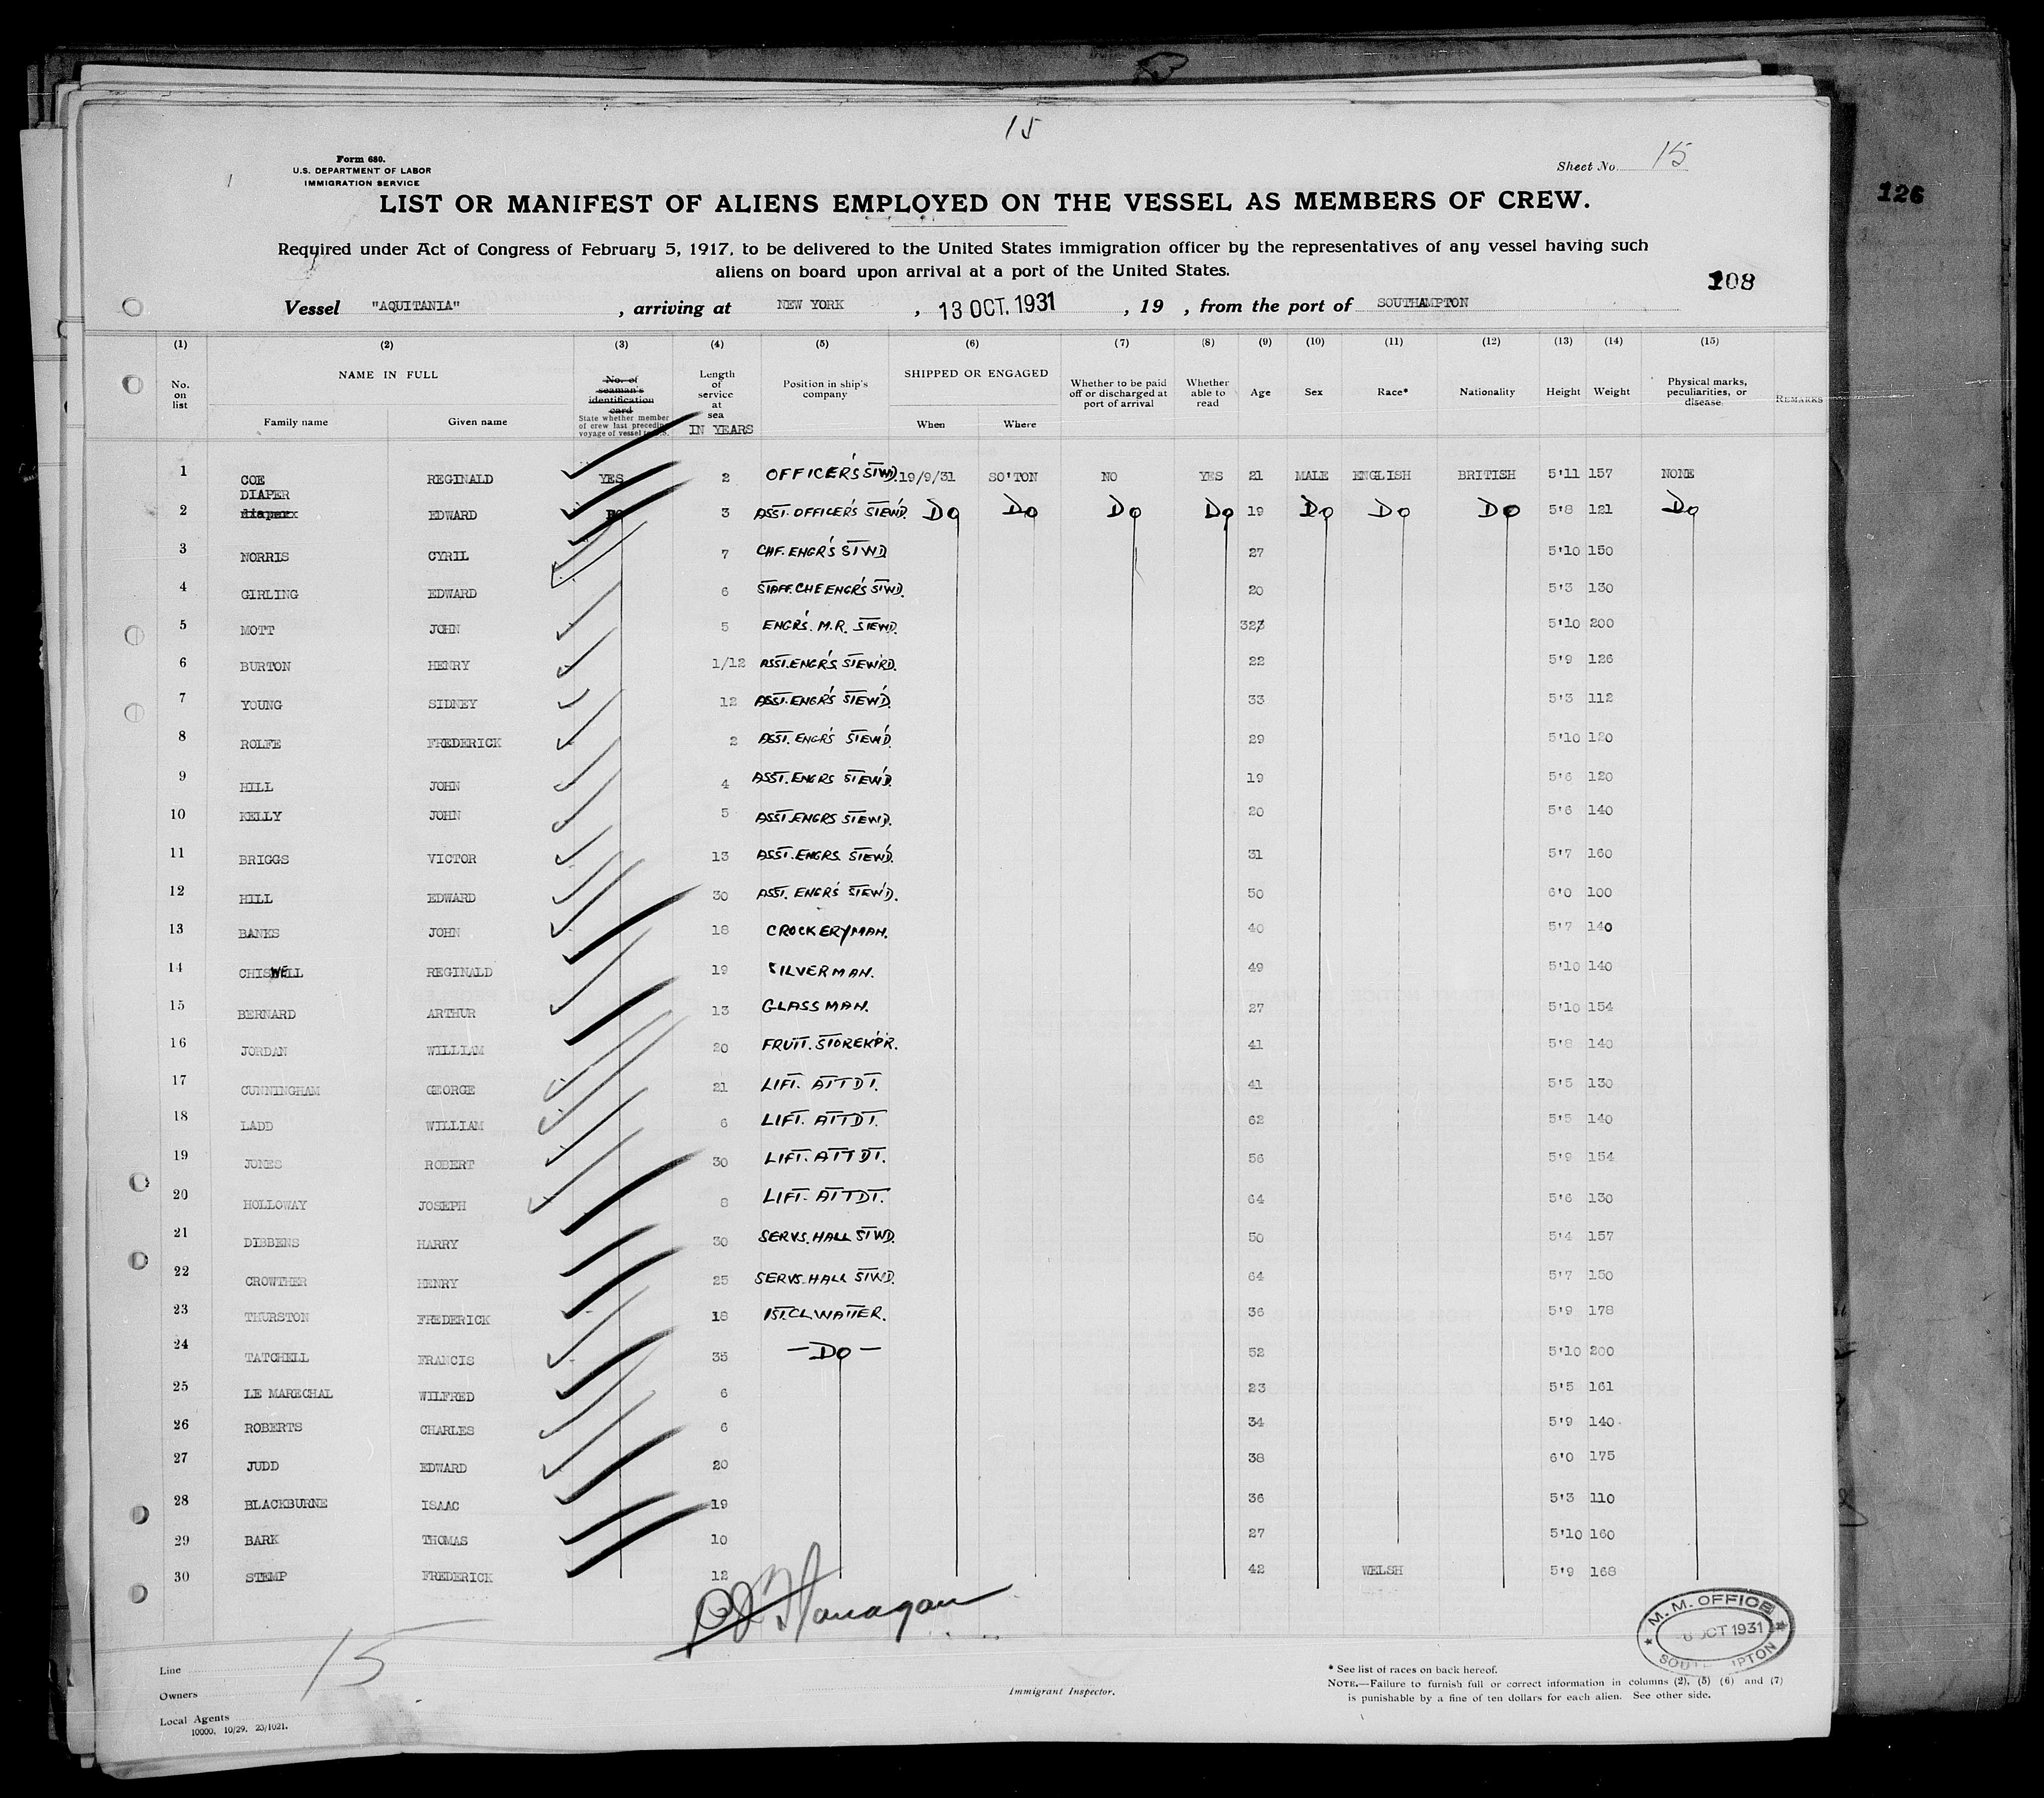 15
Form 680.
U.S. DEPARTMENT OF LABOR
IMMIGRATION SERVICE
Sheet No. 15
126
LIST OR MANIFEST OF ALIENS EMPLOYED ON THE VESSEL AS MEMBERS OF CREW.
Required under Act of Congress of February 5, 1917, to be delivered to the United States immigration officer by the representatives of any vessel having such
aliens on board upon arrival at a port of the United States.
108
Vessel "AQUITANIA" , arriving at NEW YORK , 13 OCT. 1931 , 19 , from the port of SOUTHAMPTON
(1) (2) (3) (4) (5) (6) (7) (8) (9) (10) (11) (12) (13) (14) (15)
No. on list
NAME IN FULL
Family name Given name
No. of seaman's identification card
State whether member of crew last preceding voyage of vessel to U.S.
Length of service at sea IN YEARS
Position in ship's company
SHIPPED OR ENGAGED
When Where
Whether to be paid off or discharged at port of arrival
Whether able to read
Age Sex Race* Nationality Height Weight
Physical marks, peculiarities, or disease
REMARKS
1 COE REGINALD YES 2 OFFICER'S STWD. 19/9/31 SO'TON NO YES 21 MALE ENGLISH BRITISH 5'11 157 NONE
DIAPER
2 diaper EDWARD Do 3 ASST. OFFICER'S STEWD. Do Do Do Do 19 Do Do Do 5'8 121 Do
3 NORRIS CYRIL 7 CHF. ENGR'S STWD 27 5'10 150
4 GIRLING EDWARD 6 STAFF. CHF ENGR'S STWD. 20 5'3 130
5 MOTT JOHN 5 ENGR'S. M.R. STEWD. 32 5'10 200
6 BURTON HENRY 1/12 ASST. ENGR'S STEW'RD. 22 5'9 126
7 YOUNG SIDNEY 12 ASST. ENGR'S STEW'D. 33 5'3 112
8 ROLFE FREDERICK 2 ASST. ENGR'S STEW'D. 29 5'10 120
9 HILL JOHN 4 ASST. ENGRS STEW'D. 19 5'6 120
10 KELLY JOHN 5 ASST. ENGRS STEWD. 20 5'6 140
11 BRIGGS VICTOR 13 ASST. ENGRS STEW'D. 31 5'7 160
12 HILL EDWARD 30 ASST. ENGR'S STEW'D. 50 6'0 100
13 BANKS JOHN 18 CROCKERYMAN. 40 5'7 140
14 CHISWELL REGINALD 19 SILVERMAN. 49 5'10 140
15 BERNARD ARTHUR 13 GLASSMAN. 27 5'10 154
16 JORDAN WILLIAM 20 FRUIT. STOREK'P'R. 41 5'8 140
17 CUNNINGHAM GEORGE 21 LIFT. ATTDT. 41 5'5 130
18 LADD WILLIAM 6 LIFT. ATTDT. 62 5'5 140
19 JONES ROBERT 30 LIFT. ATTDT. 56 5'9 154
20 HOLLOWAY JOSEPH 8 LIFT. ATTDT. 64 5'6 130
21 DIBBENS HARRY 30 SERVS. HALL STWD. 50 5'4 157
22 CROWTHER HENRY 25 SERVS. HALL STWD. 64 5'7 150
23 THURSTON FREDERICK 18 1ST. CL WAITER. 36 5'9 178
24 TATCHELL FRANCIS 35 — Do — 52 5'10 200
25 LE MARECHAL WILFRED 6 23 5'5 161
26 ROBERTS CHARLES 6 34 5'9 140
27 JUDD EDWARD 20 38 6'0 175
28 BLACKBURNE ISAAC 19 36 5'3 110
29 BARK THOMAS 10 27 5'10 160
30 STEMP FREDERICK 12 42 WELSH 5'9 168
Flanagan
15
M. M. OFFICE
OCT 1931
Line
Owners
Local Agents
10000, 10/29. 23/1021.
Immigrant Inspector.
* See list of races on back hereof.
NOTE.—Failure to furnish full or correct information in columns (2), (5) (6) and (7)
is punishable by a fine of ten dollars for each alien. See other side.